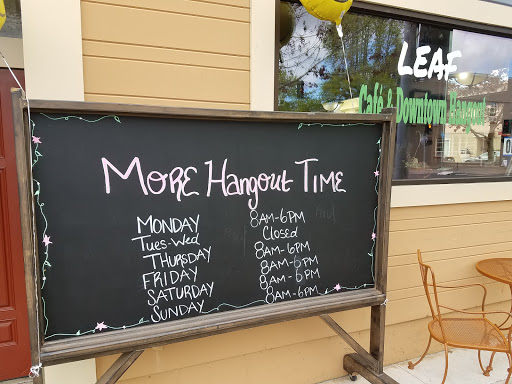 LEAF
Café & Downtown Hangout
MORE Hangout TIME
MONDAY 8AM-6PM
TUES-WED Closed
THURSDAY 8AM-6PM
FRIDAY 8AM-6PM
SATURDAY 8AM-6PM
SUNDAY 8AM-6PM